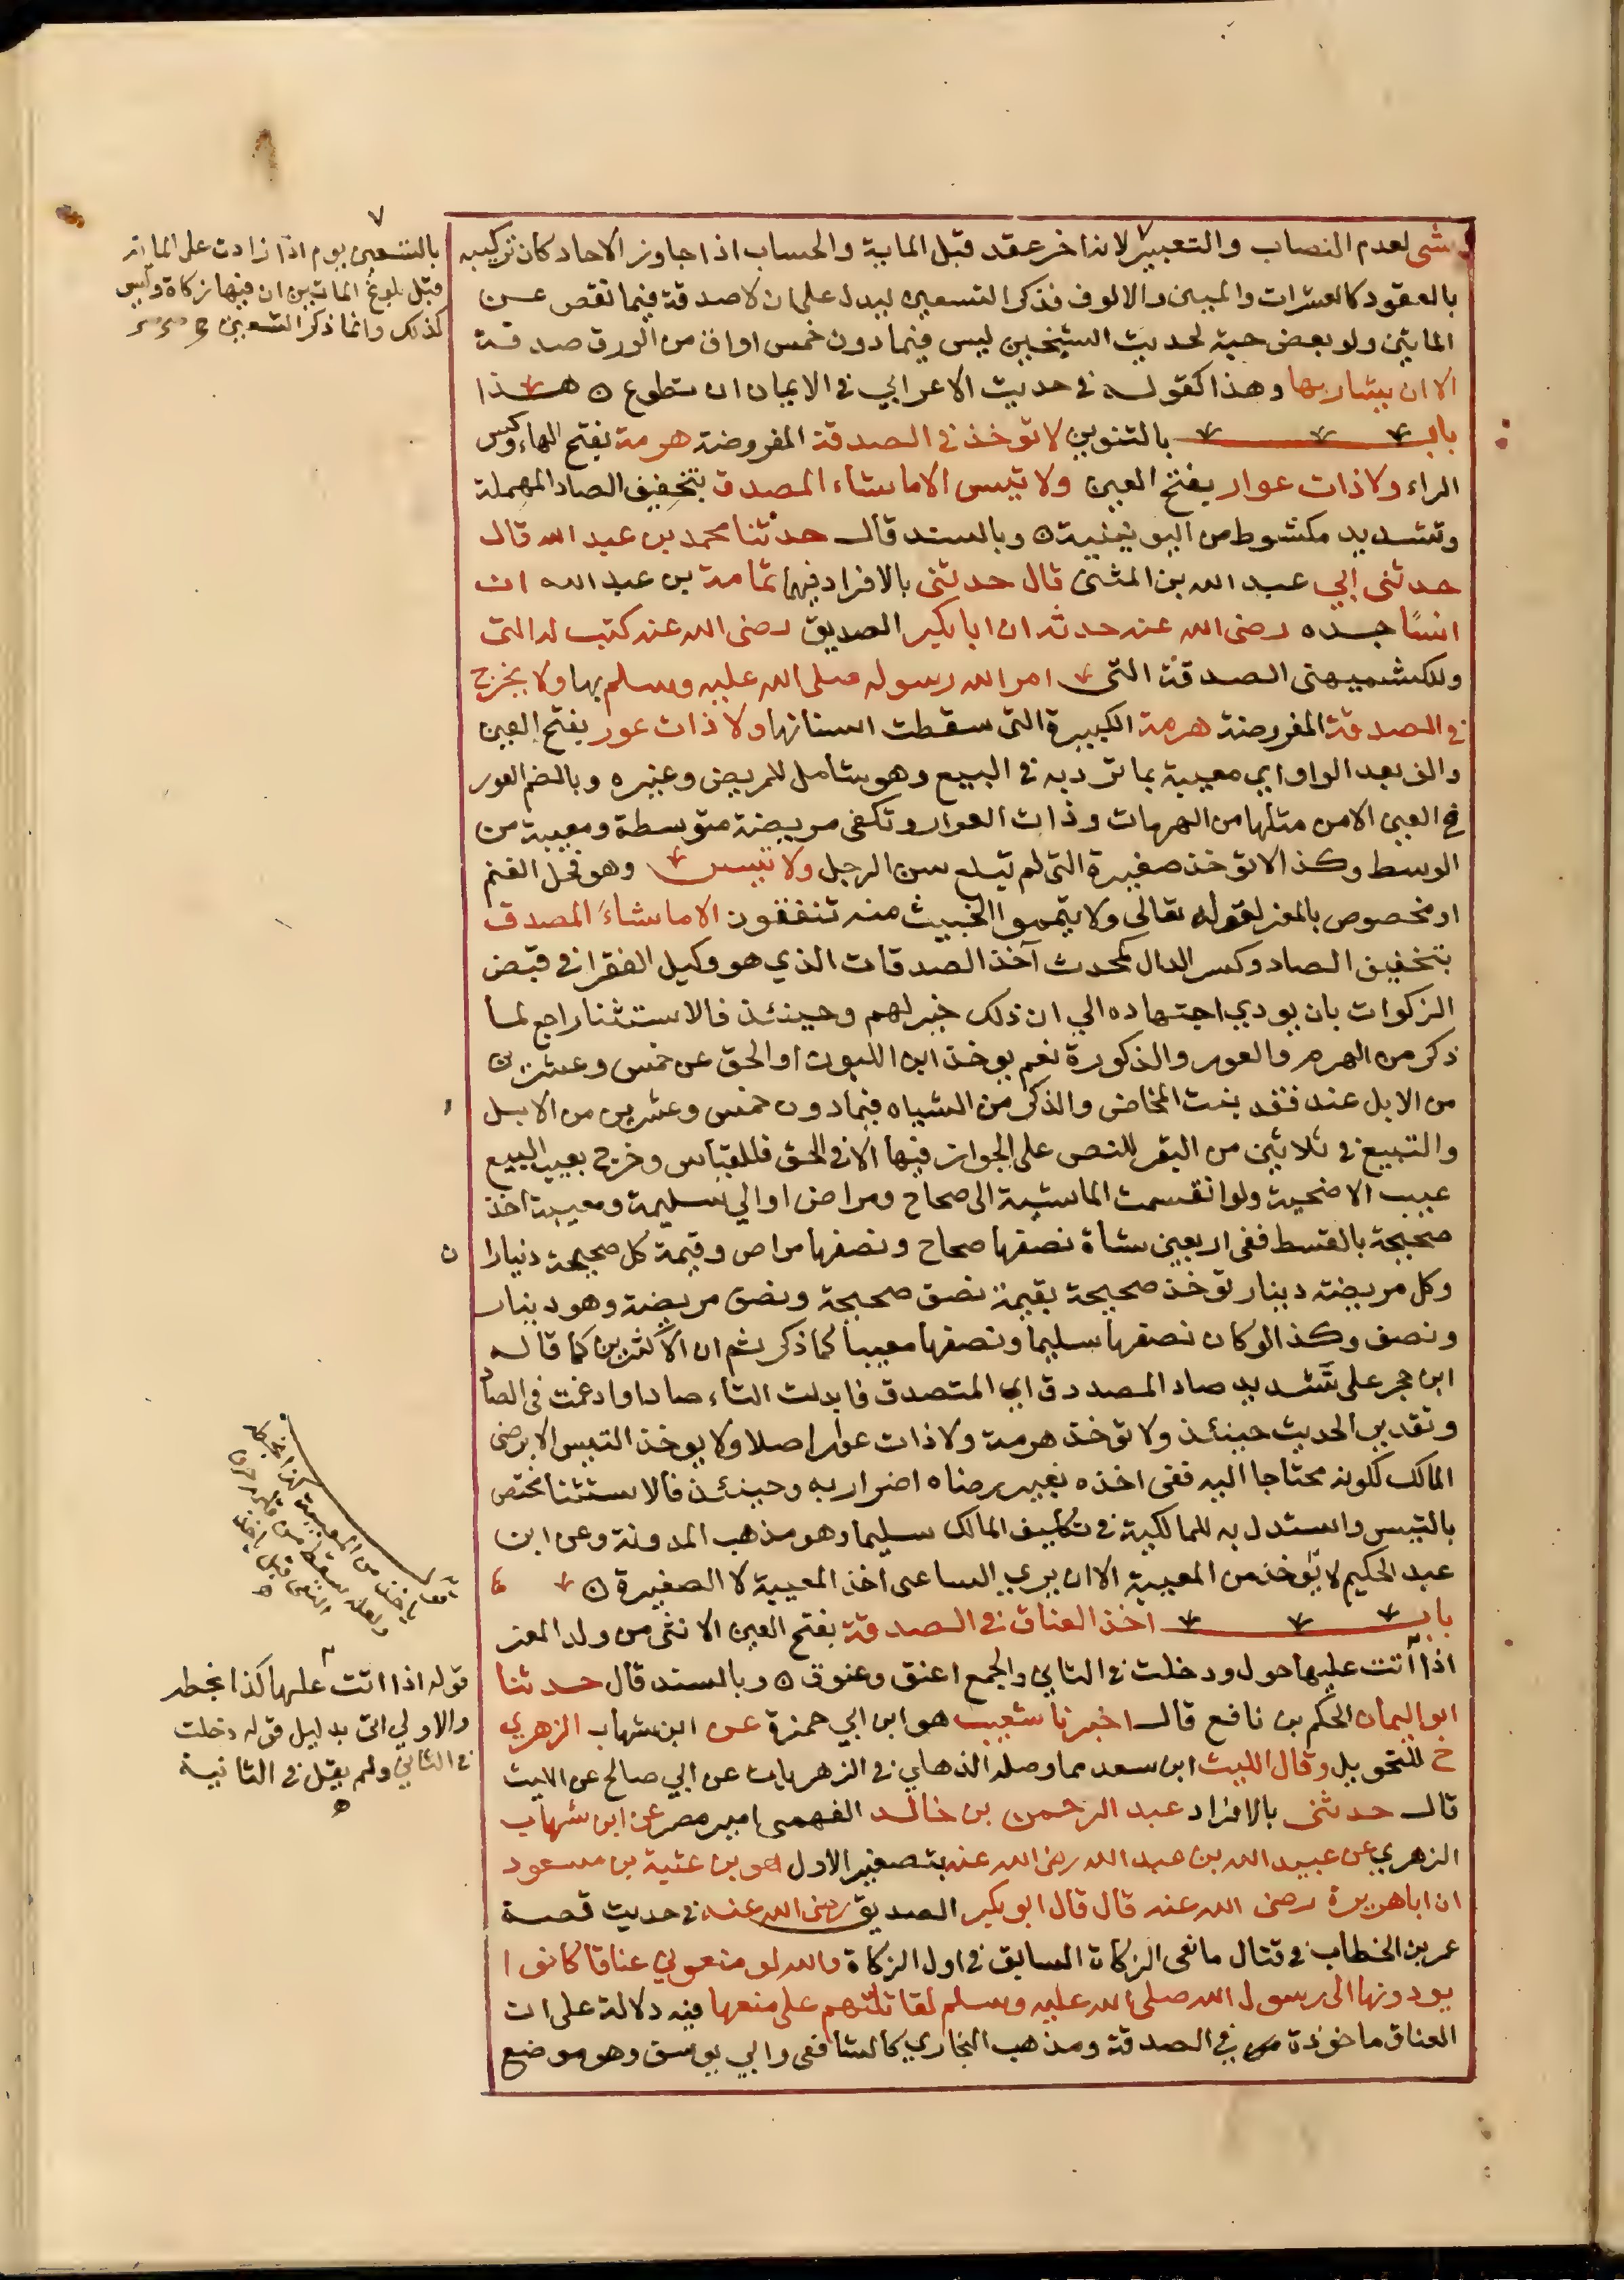 شي لعدم النصاب والتعبير لانه اخر عقد قبل الماية والحساب اذا جاوز الاحاد كان تركيبه
بالعقود كالعشرات والميين والالوف فذكر التسعين ليدل على ان لا صدقة فيما نقص عن
المايتين ولو بعض حبة لحديث الشيخين ليس فيما دون خمس اواق من الورق صدقة
الا ان يشا ربها وهذا كقوله في حديث الاعرابي في الايمان ان تطوع ه هذا
باب بالتنوين لا توخذ في الصدقة المفروضة هرمة بفتح الهاء وكسر
الراء ولا ذات عوار بفتح العين ولا تيس الا ما شاء المصدق بتخفيف الصاد المهملة
وتشديد مكشوط من اليونينية ه وبالسند قال حدثنا محمد بن عبد الله قال
حدثني ابي عبد الله بن المثنى قال حدثني بالافراد فيهما ثمامة بن عبد الله ان
انسًا جده رضى الله عنه حدثه ان ابا بكير الصديق رضى الله عنه كتب له التي
وللكشميهني الصدقة التي امر الله رسوله صلى الله عليه وسلم بها ولا يخرج
في الصدقة المفروضة هرمة الكبيرة التي سقطت اسنانها ولا ذات عور بفتح العين
والف بعد الواو اي معيبة بما ترد به في البيع وهو شامل للمريض وغيره وبالضم العور
في العين الا من مثلها من الهرمات وذات العوار وتكفى مريضة متوسطة ومعيبة من
الوسط وكذا لا توخذ صغيرة التي لم تبلغ سن الرجل ولا تيس وهو فحل الغنم
او مخصوص بالمعز لقوله تعالى ولا تيمموا الخبيث منه تنفقون الا ما شاء المصدق
بتخفيف الصاد وكسر الدال كمحدث آخذ الصدقات الذي هو وكيل الفقرا في قبض
الزكوات بان يودي اجتهاده الي ان ذلك خير لهم وحينئذ فالاستثنا راجع لما
ذكر من الهرم والعور والذكورة نعم يوخذ ابن اللبون او الحق عن خمس وعشرين
من الابل عند فقد بنت المخاض والذكر من الشياه فيما دون خمس وعشرين من الابل
والتبيع في ثلاثين من البقر للنص على الجواز فيها الا في الحق فللقياس وخرج بعيب البيع
عيب الاضحية ولو انقسمت الماشية الى صحاح ومراض او الي سليمة ومعيبة اخذ
صحيحة بالقسط ففي اربعين شاة نصفها صحاح ونصفها مراض وقيمة كل صحيحة دينارا ن
وكل مريضة دينار توخذ صحيحة بقيمة نصف صحيحة ونصف مريضة وهو دينار
ونصف وكذا لو كان نصفها سليما ونصفها معيبا كما ذكر ثم ان الاكثرين كما قاله
ابن حجر على تشديد صاد المصدق اي المتصدق فابدلت التاء صادا وادغمت في الصاد
وتقدير الحديث حينئذ ولا توخذ هرمة ولا ذات عوار اصلا ولا يوخذ التيس الا برضى
المالك لكونه محتاجا اليه ففي اخذه بغير رضاه اضرار به وحينئذ فالاستثنا مختص
بالتيس واستدل به للمالكية في تكليف المالك سليما وهو مذهب المدونة وعن ابن
عبد الحكيم لا يوخذ من المعيبة الا ان يري الساعى اخذ المعيبة لا الصغيرة ه
باب اخذ العناق في الصدقة بفتح العين الانثى من ولد المعز
اذا اتت عليها حول ودخلت في الثاني والجمع اعنق وعنوق ه وبالسند قال حدثنا
ابو اليمان الحكم بن نافع قال اخبرنا شعيب هو ابن ابي حمزة عن ابن شهاب الزهري
ح للتحويل وقال الليث ابن سعد مما وصله الذهلي في الزهريات عن ابي صالح عن الليث
قال حدثني بالافراد عبد الرحمن بن خالد الفهمي امير مصر عن ابن شهاب
الزهري عن عبيد الله بن عبد الله رضى الله عنه بتصغير الاول هو بن عتبة بن مسعود
ان ابا هريرة رضى الله عنه قال قال ابو بكير الصديق رضى الله عنه في حديث قصة
عمر بن الخطاب في قتال مانعى الزكاة السابق في اول الزكاة والله لو منعوني عناقا كانوا
يودونها الى رسول الله صلى الله عليه وسلم لقاتلتهم على منعها فيه دلالة على ان
العناق ماخوذة في الصدقة ومذهب البخاري كالشافعى وابي يوسف وهو موضع
بالتسعين يوم اذا زادت على المائة
قبل بلوغ الماتين ان فيها زكاة وليس
كذلك وانما ذكر التسعين
قوله اذا اتت عليها كذا بخطه
والاولي اتى بدليل قوله دخلت
في الثاني ولم يقل في الثانية
ه